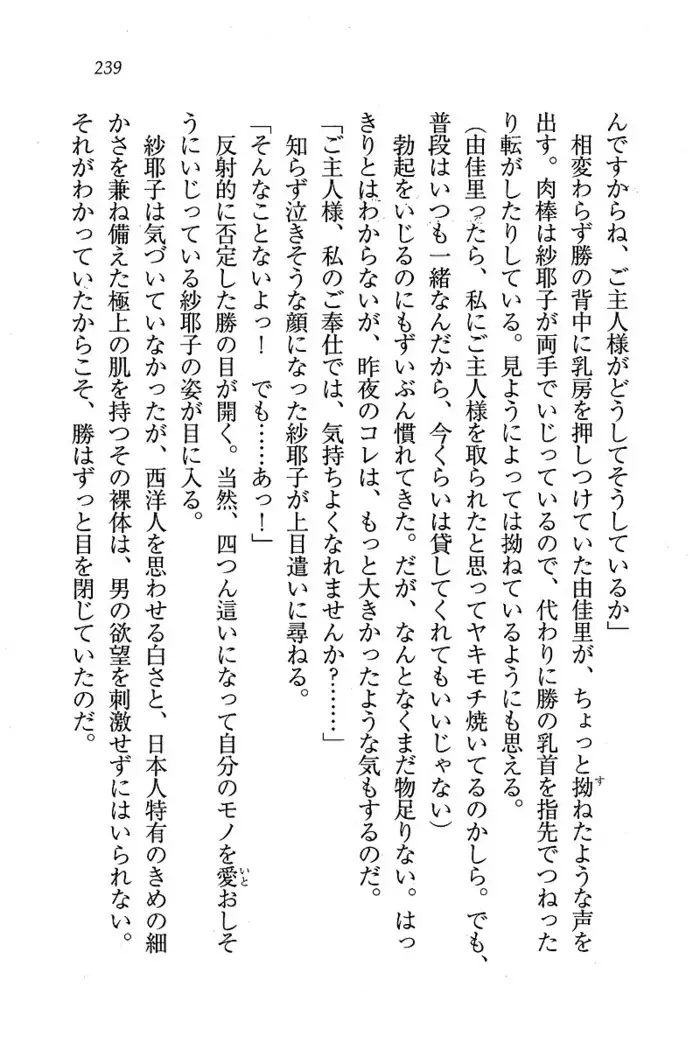 239
んですからね、ご主人様がどうしてそうしているか」
　相変わらず勝の背中に乳房を押しつけていた由佳里が、ちょっと拗ねたような声を
出す。肉棒は紗耶子が両手でいじっているので、代わりに勝の乳首を指先でつねった
り転がしたりしている。見ようによっては拗ねているようにも思える。
（由佳里ったら、私にご主人様を取られたと思ってヤキモチ焼いてるのかしら。でも、
普段はいつも一緒なんだから、今くらいは貸してくれてもいいじゃない）
　勃起をいじるのにもずいぶん慣れてきた。だが、なんとなくまだ物足りない。はっ
きりとはわからないが、昨夜のコレは、もっと大きかったような気もするのだ。
「ご主人様、私のご奉仕では、気持ちよくなれませんか？……」
　知らず泣きそうな顔になった紗耶子が上目遣いに尋ねる。
「そんなことないよっ！　でも……あっ！」
　反射的に否定した勝の目が開く。当然、四つん這いになって自分のモノを愛おしそ
うにいじっている紗耶子の姿が目に入る。
　紗耶子は気づいていなかったが、西洋人を思わせる白さと、日本人特有のきめの細
かさを兼ね備えた極上の肌を持つその裸体は、男の欲望を刺激せずにはいられない。
それがわかっていたからこそ、勝はずっと目を閉じていたのだ。